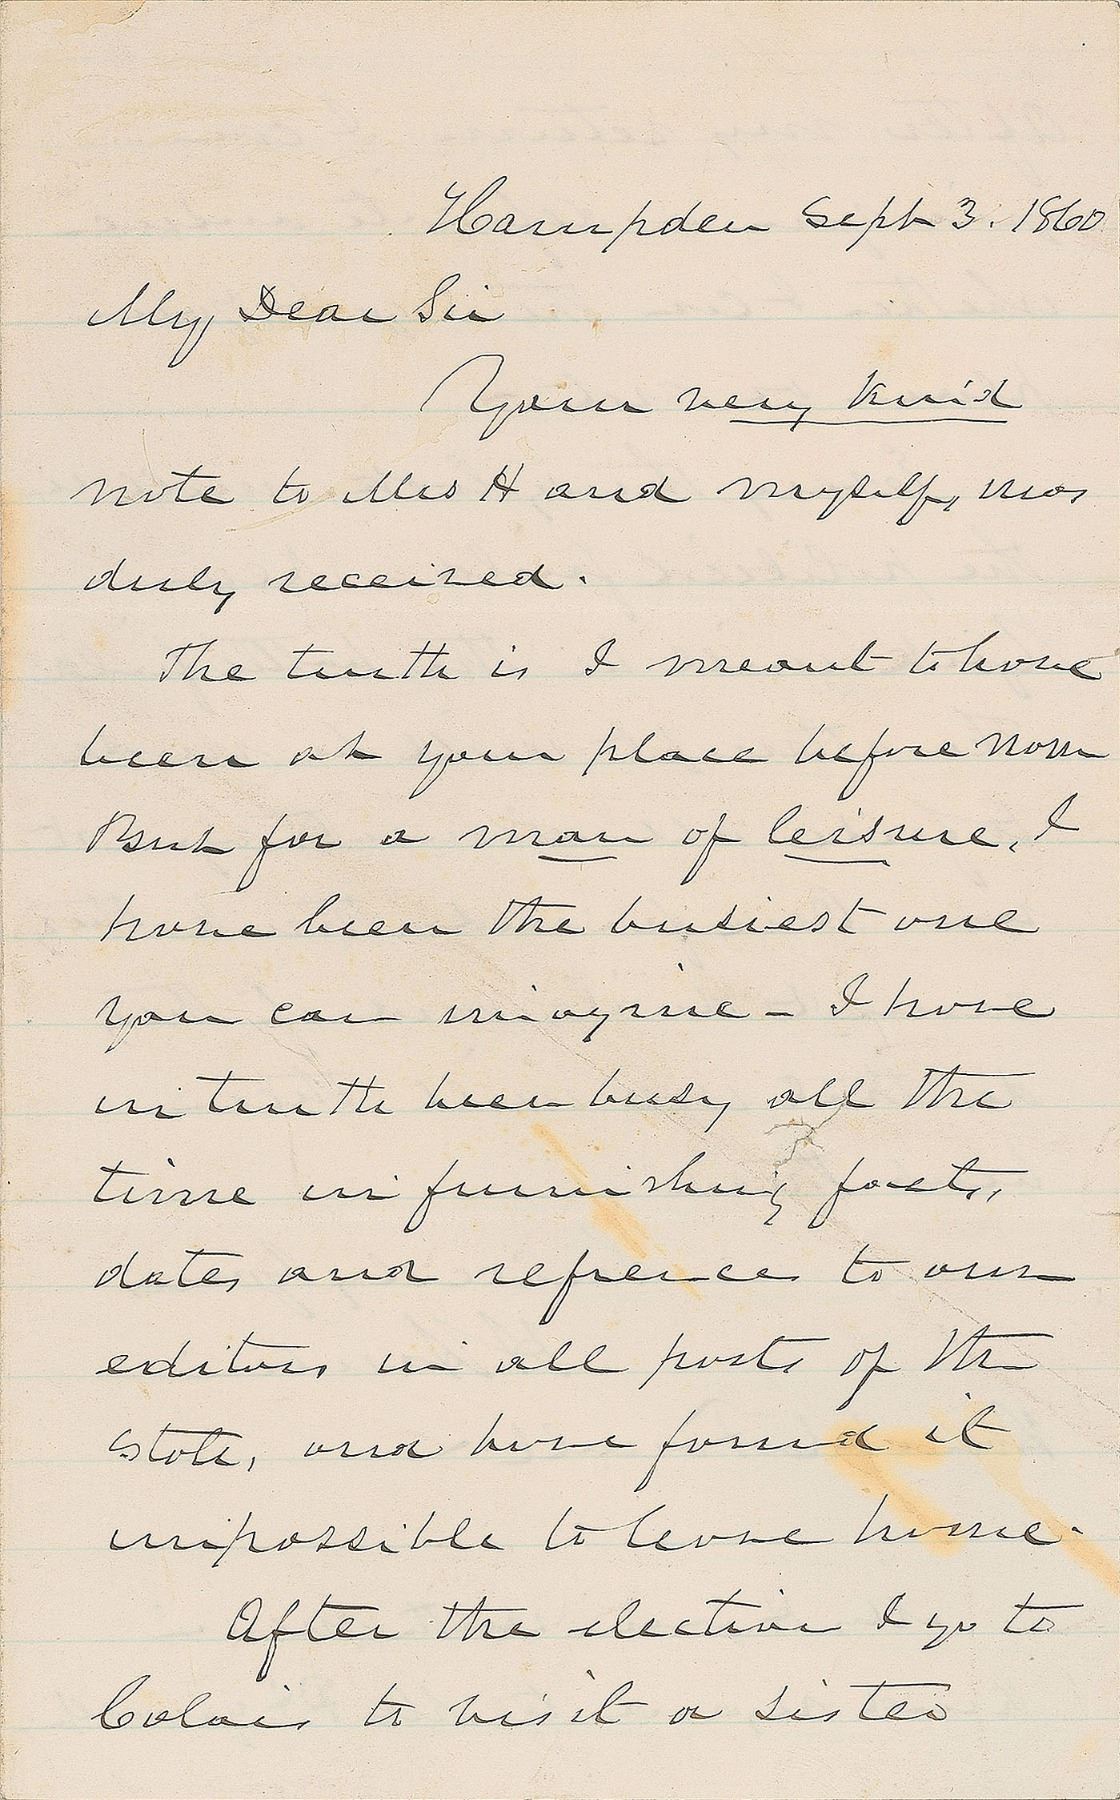 Hampden Sept 3. 1860
My Dear Sir
Your very kind
note to Mrs H and myself, was
duly received.
The truth is I meant to have
been at your place before now
But for a man of leisure, I
have been the busiest one
you can imagine - I have
in truth been busy all the
time in furnishing facts,
dates and refrences to our
editors in all parts of the
State, and have found it
impossible to leave home.
After the election I go to
Calais to visit a sister